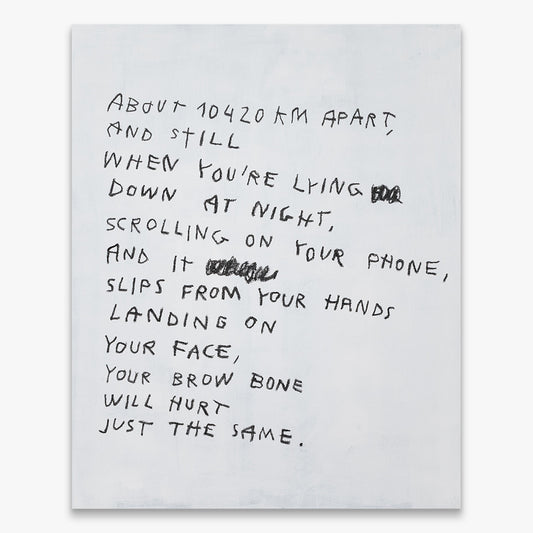 ABOUT 10420 KM APART,
AND STILL
WHEN YOU'RE LYING
DOWN AT NIGHT,
SCROLLING ON YOUR PHONE,
AND IT
SLIPS FROM YOUR HANDS
LANDING ON
YOUR FACE,
YOUR BROW BONE
WILL HURT
JUST THE SAME.